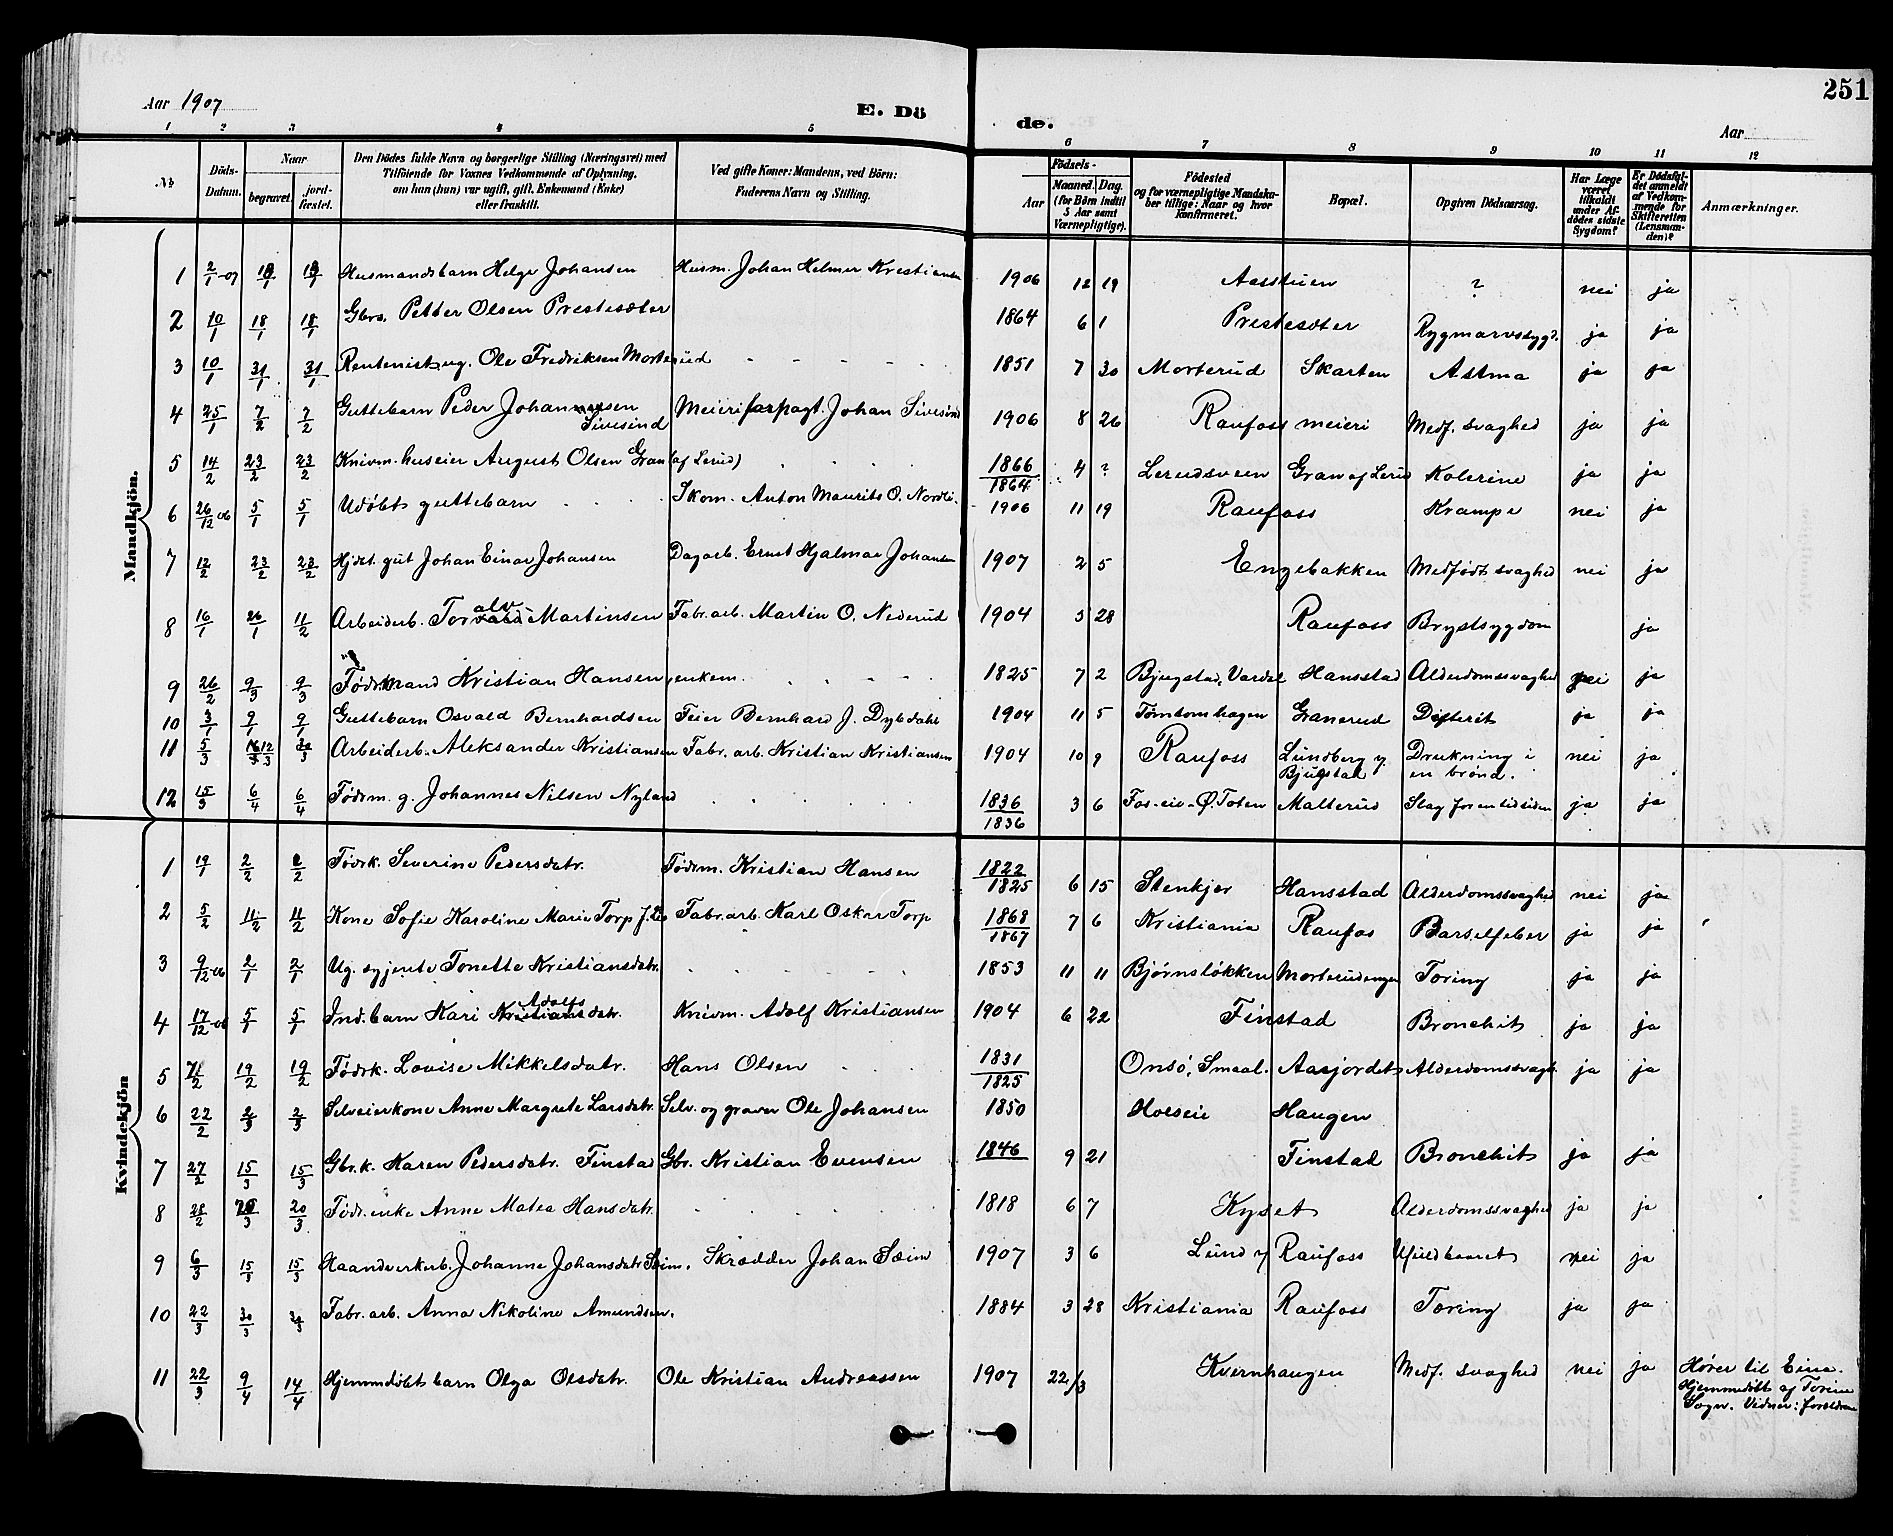 251
Aar 1907
E. Dö
de.
Aar
1 2 3 4 5 6 7 8 9 10 11 12
№
Döds-
Datum.
Naar
begravet.
jord-
fæstet.
Den Dödes fulde Navn og borgerlige Stilling (Næringsvei) med
Tilföiende for Voxnes Vedkommende af Oplysning,
om han (hun) var ugift, gift, Enkemand (Enke)
eller fraskilt.
Ved gifte Koner: Mandens, ved Börn:
Faderens Navn og Stilling.
Födsels-
Aar
Maaned. Dag.
(for Börn indtil
5 Aar samt
Værnepligtige).
Födested
og for værnepligtige Mandska-
ber tillige: Naar og hvor
konfirmeret.
Bopæl.
Opgiven Dödsaarsag.
Har Læge
været
tilkaldt
under Af-
dödes sidste
Sygdom?
Er Dödsfal-
det anmeldt
af Vedkom-
mende for
Skifteretten
(Lensman-
den)?
Anmærkninger.
Mandkjön.
1 2/1-07 Husmandsbarn Helge Johansen Husm. Johan Helmer Kristiansen 1906 12 19 Aasstuen ? nei ja
2 10/1 18/1 18/1 Gbrs. Petter Olsen Prestesæter 1864 6 1 Prestesæter Rygmarvssygd. ja ja
3 10/1 31/1 31/1 Rentenist, ug. Ole Fredriksen Morterud 1851 7 30 Morterud Skarten Astma ja ja
4 25/1 7/2 7/2 Guttebarn Peder Johannessen Sivesind Meieriforpagt. Johan Sivesind 1906 8 26 Raufoss meieri Medf. svaghed ja ja
5 14/2 23/2 23/2 Knivm. huseier August Olsen Gran (af Lerud) 1866/1864 4 ? Lerudsveen Gran af Lerud Kolerine ja ja
6 26/12 06 5/1 5/1 Udøbt guttebarn Skom. Anton Maurits O. Nordli. 1906 11 19 Raufoss Krampe nei ja
7 12/2 23/2 23/2 Hjdøt. gut Johan Einar Johansen Dagarb. Ernst Hjalmar Johansen 1907 2 5 Engebakken Medfødt svaghed nei ja
8 16/1 26/1 11/2 Arbeiderb. Toralv Martinsen Fabr. arb. Martin O. Nederud 1904 5 28 Raufoss Brystsygdom ja
9 26/2 9/3 9/3 Fødr. mand Kristian Hansen, enkem. 1825 7 2 Bjugstad, Vardal Hansstad Alderdomssvaghed nei ja
10 3/1 9/1 9/1 Guttebarn Osvald Bernhardsen Feier Bernhard J. Dybdahl 1904 11 5 Tømtomhagen Granerud Difterit ja ja
11 5/3 12/3 Arbeiderb. Aleksander Kristiansen Fabr. arb. Kristian Kristiansen 1904 10 9 Raufoss Lundberg y. Bjugstad Drukning i en brønd. nei ja
12 15/3 6/4 6/4 Fødrm. g. Johannes Nilsen Nyland 1836/1836 3 6 Fos-eie-Ø. Toten Malterud Slag for en tid siden ja ja
Kvindekjön
1 19/1 2/2 2/2 Fødrk. Severine Pedersdatr. Fødrm. Kristian Hansen 1822/1825 6 15 Stenkjer Hansstad Alderdomssvaghed nei ja
2 5/2 11/2 11/2 Kone Sofie Karoline Marie Torp Fabr. arb. Karl Oskar Torp 1868/1867 7 6 Kristiania Raufos Barselfeber ja ja
3 9/12 06 2/1 2/1 Ug. syjente Tonette Kristiansdatr. 1853 11 11 Bjørnsløkken Morterudengen Tæring ja ja
4 17/12-06 5/1 5/1 Ind. barn Kari Adolfsdatr. Knivm. Adolf Kristiansen 1904 6 22 Finstad Bronchit ja ja
5 19/2 19/2 Fødrk. Lovise Mikkelsdatr. Hans Olsen 1831/1825 Onsø, Smaal. Aasjordet Alderdomssvagh. ja ja
6 22/2 2/3 2/3 Selveierkone Anne Margrete Larsdatr. Selv. og graver Ole Johansen 1850 Hoeseie Haugen
7 27/2 15/3 15/3 Gbr. k. Karen Pedersdatr. Finstad Gbr. Kristian Evensen 1846 9 21 Finstad Bronchit ja ja
8 28/2 20/3 20/3 Fødr. enke Anne Matea Hansdatr. 1818 6 7 Kyset Alderdomssvaghed ja ja
9 6/3 15/3 15/3 Haandverkerb. Johanne Johansdatr. Sæim. Skrædder Johan Sæim 1907 3 6 Lund y Raufoss Ufuldbaaret nei ja
10 22/3 30/3 Fabr. arb. Anna Nikoline Amundsen. 1884 3 28 Kristiania Raufoss Tæring ja ja
11 22/3 9/4 14/4 Hjemmedøbt barn Olga Olsdatr. Ole Kristian Andreassen 1907 22/3 Kvernhaugen Medf. svaghed nei ja Hører til Eina. Hjemmedøbt af Sogn. Vidner: forældrene